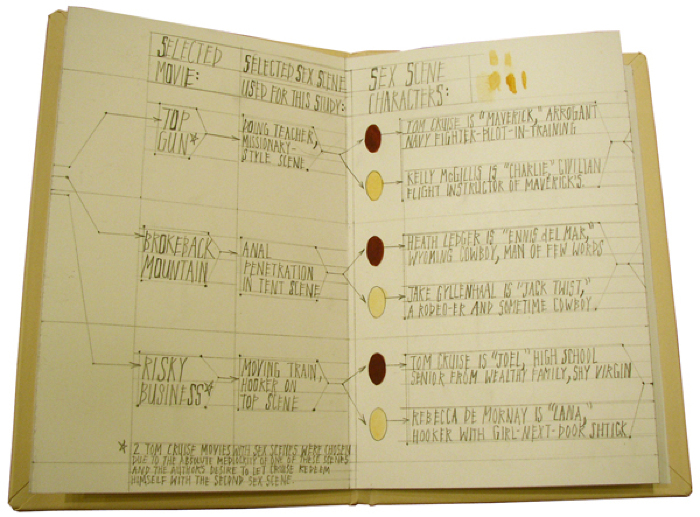 SELECTED
MOVIE:
SELECTED SEX SCENE
USED FOR THIS STUDY:
SEX SCENE
CHARACTERS:
TOP
GUN*
DOING TEACHER,
MISSIONARY-
STYLE SCENE
TOM CRUISE IS "MAVERICK," ARROGANT
NAVY FIGHTER-PILOT-IN-TRAINING
KELLY McGILLIS IS "CHARLIE," CIVILIAN
FLIGHT INSTRUCTOR OF MAVERICK'S.
BROKEBACK
MOUNTAIN
ANAL
PENETRATION
IN TENT SCENE
HEATH LEDGER IS "ENNIS DEL MAR,"
WYOMING COWBOY, MAN OF FEW WORDS
JAKE GYLLENHAAL IS "JACK TWIST,"
A RODEO-ER AND SOMETIME COWBOY.
RISKY
BUSINESS*
MOVING TRAIN,
HOOKER ON
TOP SCENE
TOM CRUISE IS "JOEL," HIGH SCHOOL
SENIOR FROM WEALTHY FAMILY, SHY VIRGIN
REBECCA DE MORNAY IS "LANA,"
HOOKER WITH GIRL-NEXT-DOOR SHTICK.
* 2 TOM CRUISE MOVIES WITH SEX SCENES WERE CHOSEN
DUE TO THE ABSOLUTE MEDIOCRITY OF ONE OF THESE SCENES
AND THE AUTHORS DESIRE TO LET CRUISE REDEEM
HIMSELF WITH THE SECOND SEX SCENE.